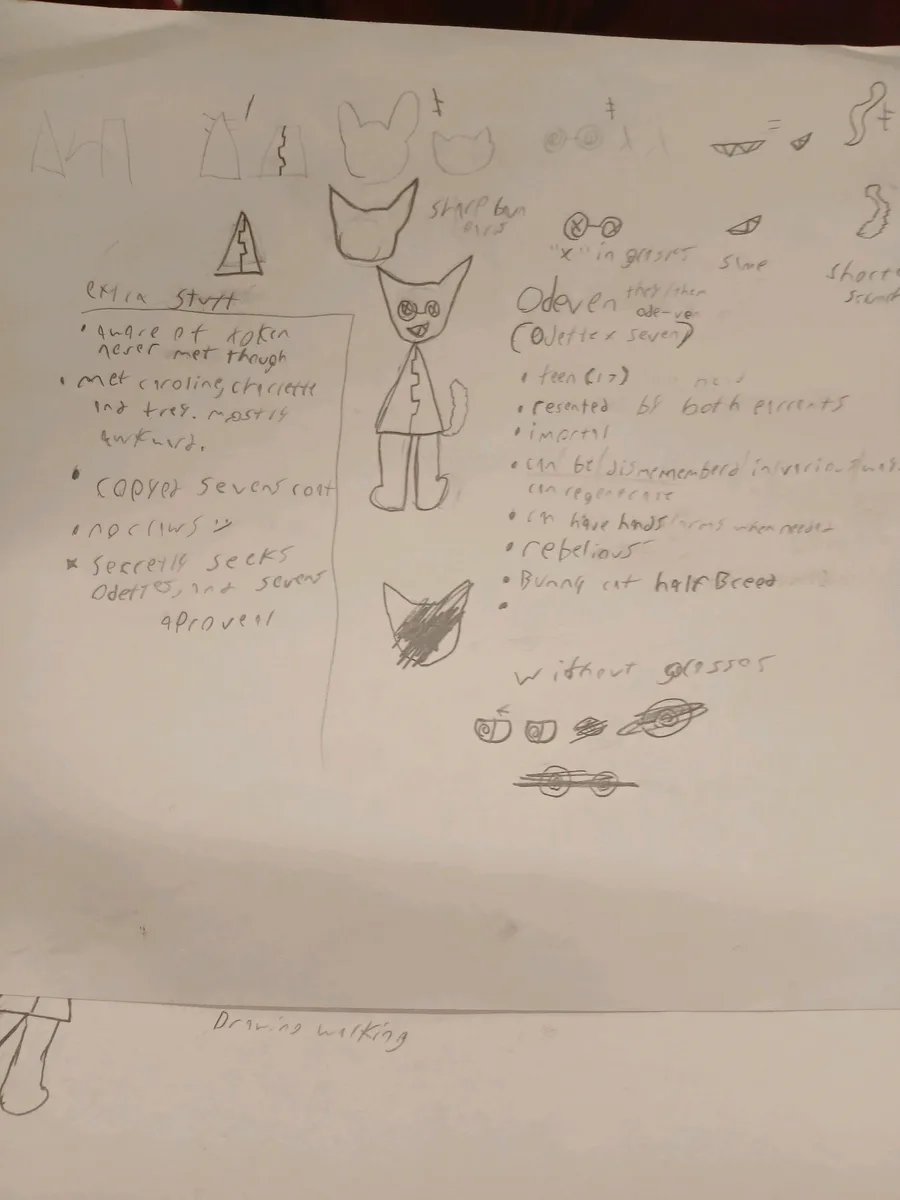 sharp bun
ears
"x" in glasses
Same
short
extra stuff
• Aware of token
never met though
• met caroline, charlette
and trey. mostly
awkward.
• copyed sevens coat
• no claws :)
* secretly seeks
Odettes, and sevens
aproveal
Odeven they/them
ode-ven
(Odette x seven)
• teen (17)
• resented by both parents
• imortal
• can be dismememberd in various ways
can regenerate
• can have hands/arms when needed
• rebelious
• Bunny cat half Breed
•
without glasses
Drawing walking